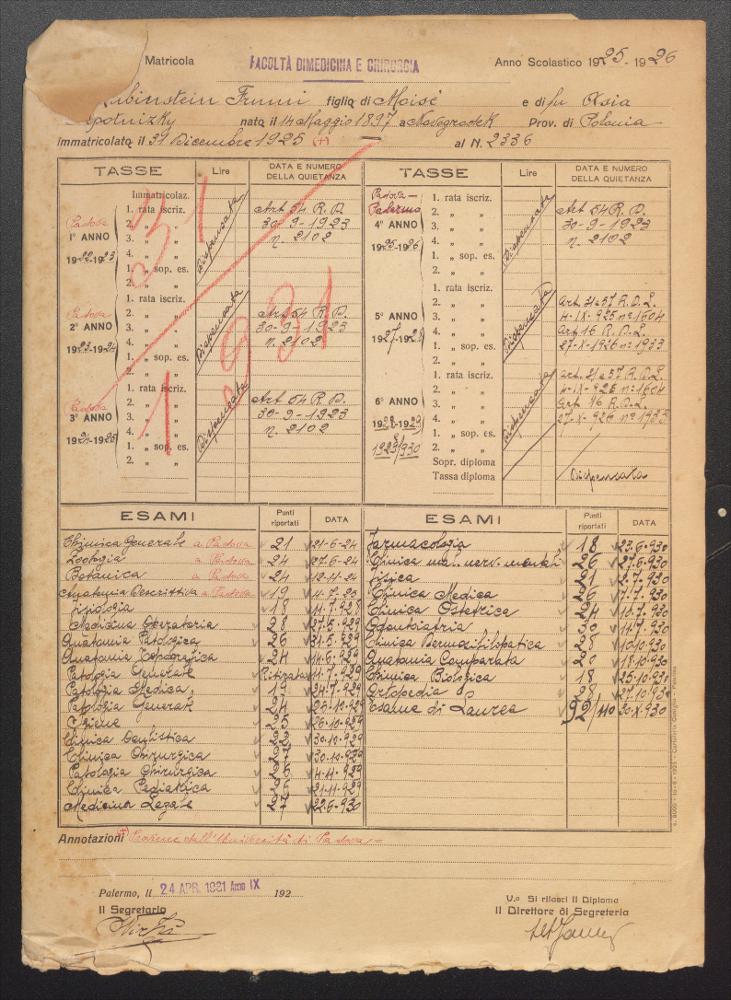 Matricola FACOLTÀ DI MEDICINA E CHIRURGIA Anno Scolastico 1925-1926
Rubinstein Frumi figlio di Moisè e di fu Asia
nato il 14 Maggio 1897 a Novogrodek Prov. di Polonia
immatricolato il 31 Dicembre 1925 (+) al N. 2336
TASSE Lire DATA E NUMERO DELLA QUIETANZA TASSE Lire DATA E NUMERO DELLA QUIETANZA
Immatricolaz.
Padova
1° ANNO
1922-1923
1. rata iscriz.
2. " "
3. " "
4. " "
1. " sop. es.
2. " "
Dispensata
Art 54 R.D.
30-9-1923
n. 2102
Padova
2° ANNO
1923-1924
1. rata iscriz.
2. " "
3. " "
4. " "
1. " sop. es.
2. " "
Dispensata
Art 54 R.D.
30-9-1923
n. 2102
Padova
3° ANNO
1924-1925
1. rata iscriz.
2. " "
3. " "
4. " "
1. " sop. es.
2. " "
Dispensata
Art 54 R.D.
30-9-1923
n. 2102
Padova-
Palermo
4° ANNO
1925-1926
1. rata iscriz.
2. " "
3. " "
4. " "
1. " sop. es.
2. " "
Dispensata
Art 54 R.D.
30-9-1923
n. 2102
5° ANNO
1927-1928
1. rata iscriz.
2. " "
3. " "
4. " "
1. " sop. es.
2. " "
Dispensata
4-IX-925 n° 1604
Art 16 R.D.L.
27-X-1926 n° 1933
6° ANNO
1928-1929
1929/930
1. rata iscriz.
2. " "
3. " "
4. " "
1. " sop. es.
2. " "
Sopr. diploma
Tassa diploma
Dispensata
4-IX-925 n° 1604
Art 16 R.D.L.
27-X-926 n° 1933
Dispensata
31 1 931
ESAMI Punti riportati DATA
Chimica Generale a Padova 21 21-6-24
Zoologia a Padova 24 27-6-24
Botanica a Padova 24 12-11-24
Anatomia Descrittiva a Padova 19 4-7-25
Fisiologia 18 11-7-928
Medicina Operatoria 28 27-5-929
Anatomia Patologica 26 31-5-929
Anatomia Topografica 24 14-6-929
Patologia Generale Ritirata 11-7-929
Patologia Medica 24-7-929
Patologia Generale 24 26-10-929
Igiene 25 26-10-929
Clinica Oculistica 30-10-929
Clinica Chirurgica 30-10-929
Patologia Chirurgica 4-11-929
Clinica Pediatrica 21-11-929
Medicina Legale 22-6-930
ESAMI Punti riportati DATA
Farmacologia 18 23-6-930
Clinica mal. nerv. mentali 26 27-6-930
Fisica 21 2-7-930
Clinica Medica 26 7-7-930
Clinica Ostetrica 24 10-7-930
Odontoiatria 30 14-7-930
Clinica Dermosifilopatica 28 10-10-930
Anatomia Comparata 20 18-10-930
Chimica Biologica 18 25-10-930
Ortopedia 28 27-10-930
Esame di Laurea 92/110 30-X-930
Annotazioni (+) Proviene dall'Università di Padova-
Palermo, li 24 APR. 1931 Anno IX 192
Il Segretario
V.o Si rilasci Il Diploma
Il Direttore di Segreteria